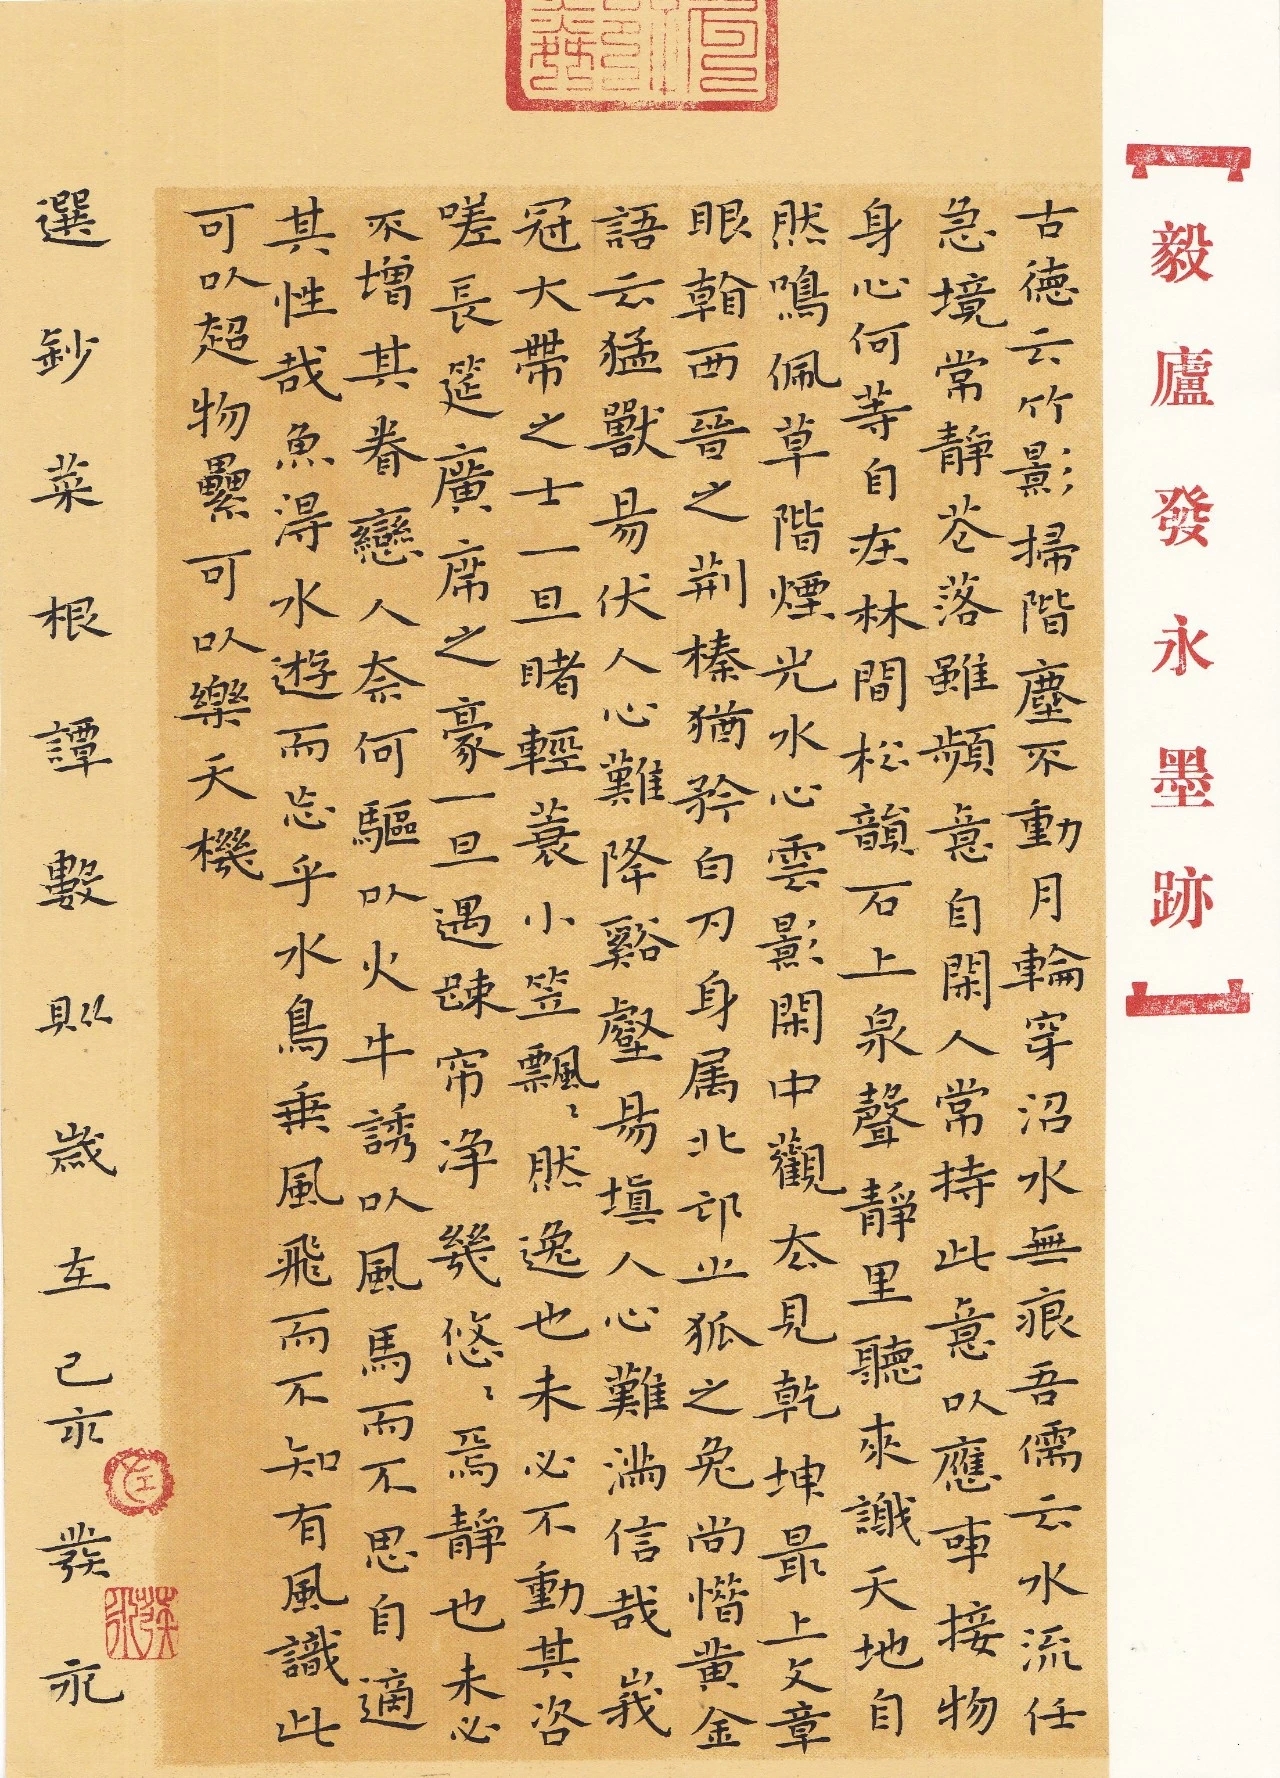 毅廬發永墨跡
古德云竹影掃階塵不動月輪穿沼水無痕吾儒云水流任
急境常靜花落雖頻意自閑人常持此意以應事接物
身心何等自在林間松韻石上泉聲靜里聽來識天地自
然鳴佩草階煙光水心雲影閑中觀去見乾坤最上文章
眼看西晉之荊榛猶矜白刃身属北邙之狐之兔尚惜黄金
語云猛獸易伏人心難降谿壑易填人心難滿信哉 峩
冠大帶之士一旦睹輕蓑小笠飄〻然逸也未必不動其咨
嗟長筵廣席之豪一旦遇踈帘净幾悠〻焉靜也未必
不增其眷戀人奈何驅以火牛誘以風馬而不思自適
其性哉魚得水遊而忘乎水鳥乗風飛而不知有風識此
可以超物纍可以樂天機
選鈔菜根譚數則歲在己亥發永